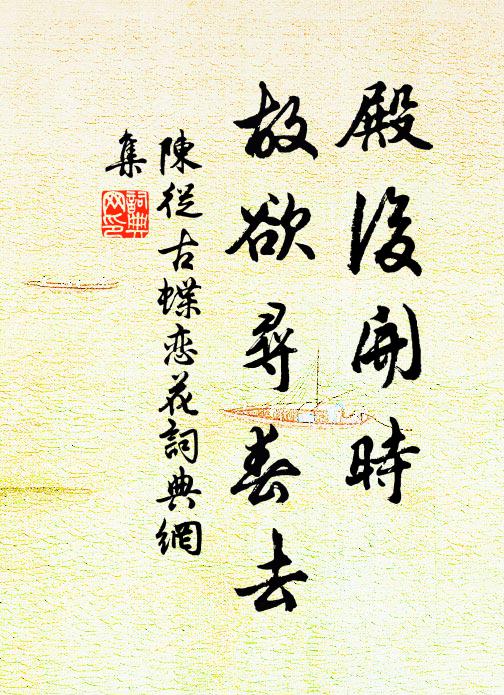 殿後開時
故欲尋春去
陳從古蝶恋花詞典網
集
詞典
网印